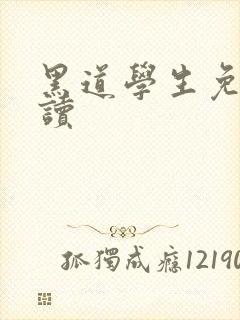 黑道學生免
讀
孤獨成癮12190